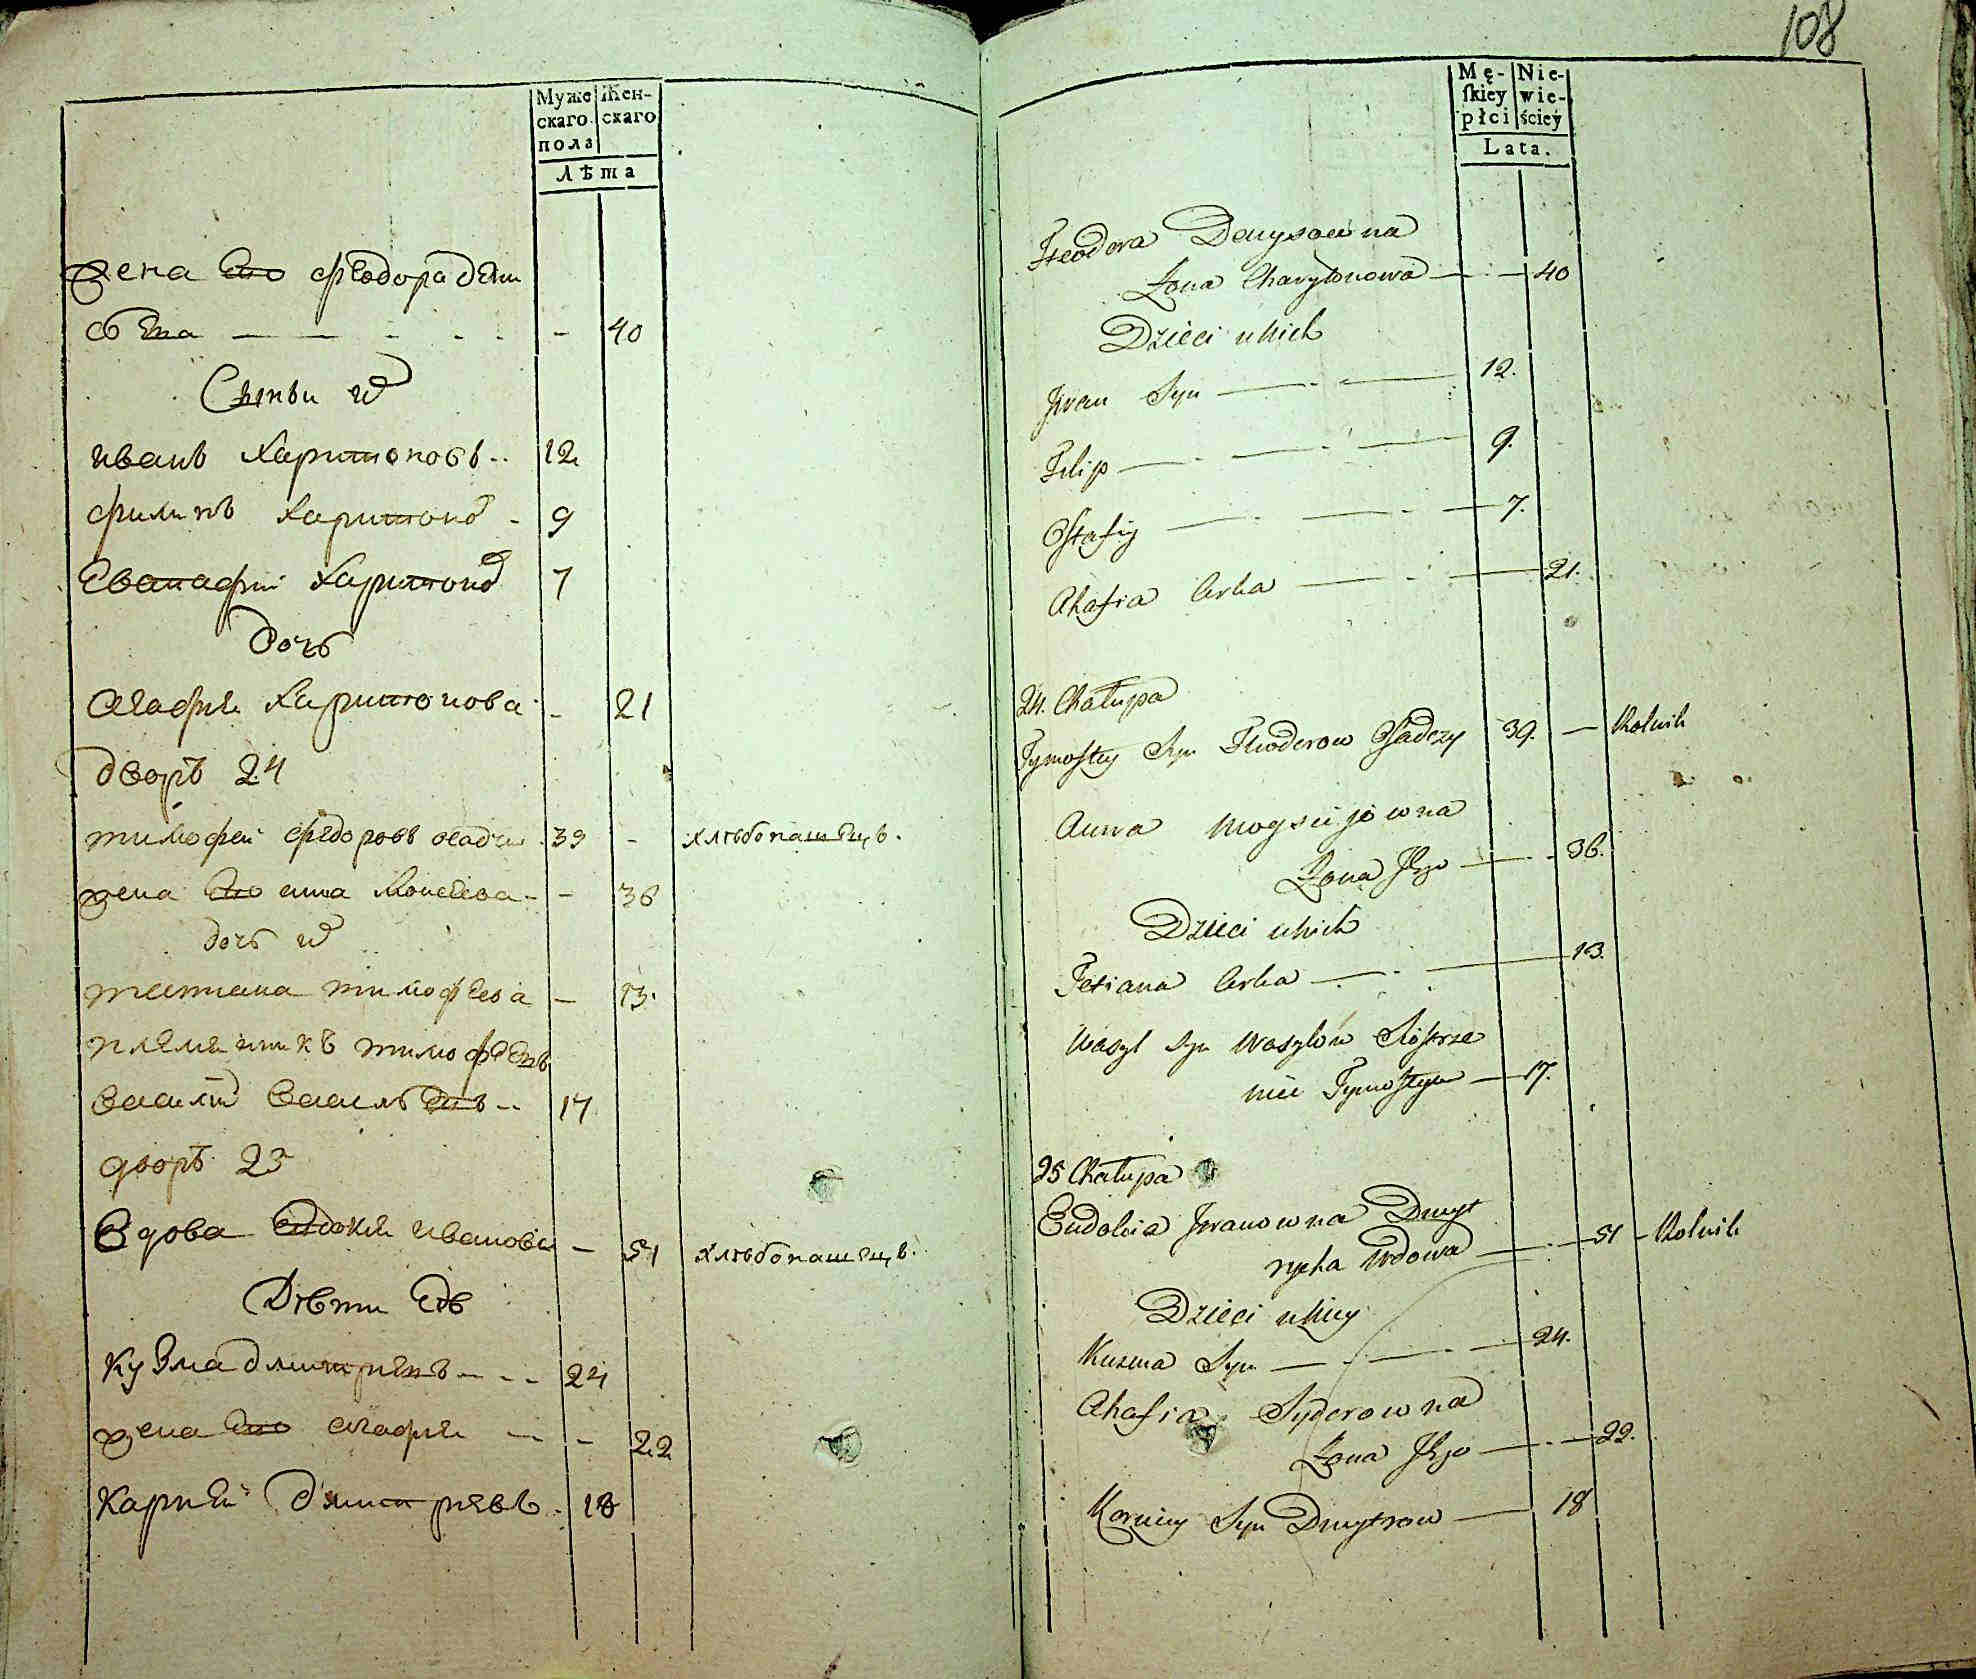 Муже Жен-
скаго скаго
пола
Лѣта
жена Его федора дени
совна — — - - - - 40
Сыны их
иванъ Харитоновъ - - 12
филипъ Харитонов - 9
Евстафий Харитонов 7
дочь
агафия Харитонова - - 21
дворъ 24
тимофей федоровъ осадчи 39 - хлѣбопашецъ.
жена Его анна Моисеева - - 36
дочь их
татиана тимофеева — 13.
племянникъ тимофеевъ
василий васильевъ - - 17
дворъ 25
вдова Евдокия иванова — 51 хлѣбопашецъ.
Дѣти Еѣ
кузма дмитриевъ - - - 24
жена Его агафия - - - 22
карпей дмитриевъ - 18
108
Mę- Nie-
ſkiey wie-
płci ściey
Lata.
Fteodora Denysowna
Zona Charytonowa — — 40
Dzieci u nich
Jwan Syn — - — 12.
Filip — - — - — 9.
Ostafiy — - — - — 7.
Ahafia Corka — - — 21.
24. Chałupa
Tymoftey Syn Fteoderow Osadczy 39. — Rolnik
Anna Moysiijowna
Zona Jego — - 36.
Dzieci u nich
Tetiana Corka — - — 13.
Wasyl Syn Wasylów Siostrze
niec Tymofteyu — 17.
25 Chałupa
Eudokia Jwanowna Dmyt
rycha Wdowa — - — 51 - Rolnik
Dzieci u Niey
Kuzma Syn — - — - — 24.
Ahafia Syderowna
Zona Jego — - — 22.
Korniey Syn Dmytrow — 18